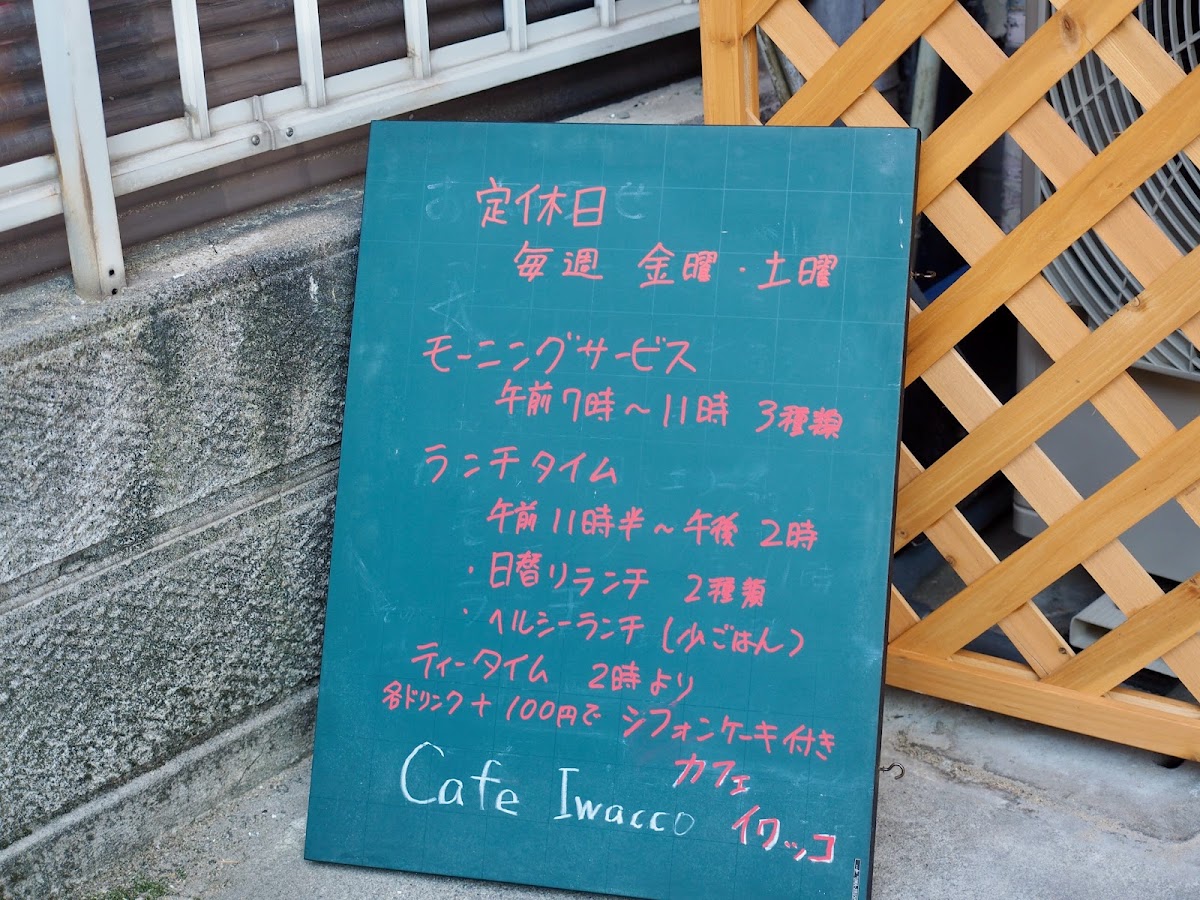 定休日
毎週 金曜・土曜
モーニングサービス
午前7時～11時 3種類
ランチタイム
午前11時半～午後2時
・日暦りランチ 2種類
・ヘルシーランチ(少ごはん)
ティータイム 2時より
各ドリンク+100円で シフォンケーキ付き
カフェ
Cafe Iwacco イワッコ